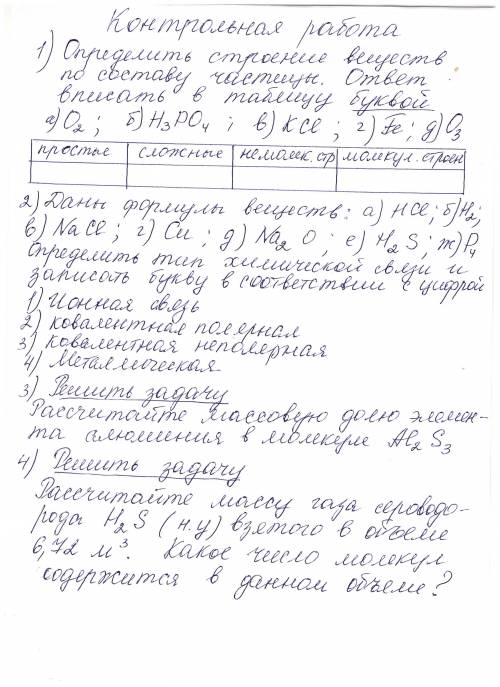 Контрольная работа
1) Определить строение веществ
по составу частицы. Ответ
вписать в таблицу буквой
а) O₂; б) H₃PO₄; в) KCl; г) Fe; д) O₃
простые сложные немолек. стр молекул. строен
2) Даны формулы веществ: а) HCl; б) H₂;
в) NaCl; г) Cu; д) Na₂O; е) H₂S; ж) P₄
Определить тип химической связи и
записать букву в соответствии с цифрой
1) Ионная связь
2) ковалентная полярная
3) ковалентная неполярная
4) Металлическая
3) Решить задачу
Рассчитайте массовую долю элемен-
та алюминия в молекуле Al₂S₃
4) Решить задачу
Рассчитайте массу газа сероводо-
рода H₂S (н.у) взятого в объеме
6,72 м³. Какое число молекул
содержится в данном объеме?